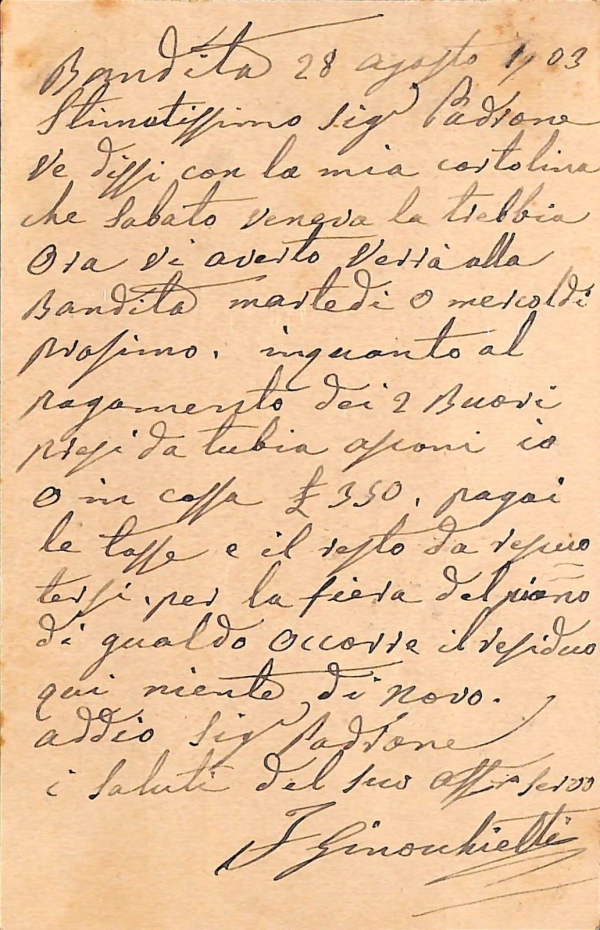 Bandita 28 agosto 1903
Stimatissimo Sigr Padrone
Ve dissi con la mia cartolina
che Sabato veneva la trebbia
Ora vi averto verrà alla
Bandita martedi o mercoldi
prosimo. inquanto al
pagamento dei 2 Buovi
presi da tubia aponi io
O in cassa £ 350. pagai
le tasse e il resto da
tersi. per la fiera del piano
di gualdo occorre il residuo
qui niente di novo.
addio Sigr Padrone
i Saluti del suo affmo servo
F Ginochietti